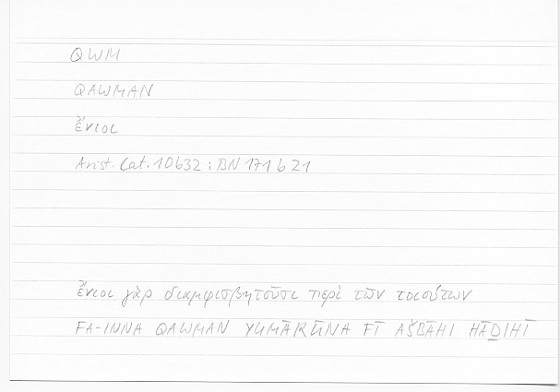 QWM
QAWMAN
ἔνιοι
Arist. Cat. 10b32 : BN 171 b 21
ἔνιοι γὰρ διαμφισβητοῦσι περὶ τῶν τοιούτων
FA-INNA QAWMAN YUMĀRŪNA FĪ AŠBĀHI HĀḎIHĪ